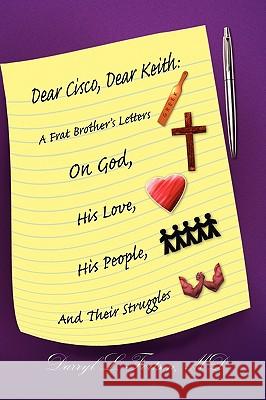 Dear Cisco, Dear Keith:
A Frat Brother's Letters
On God,
His Love,
His People,
And Their Struggles
Darryl L. Fortson, MD